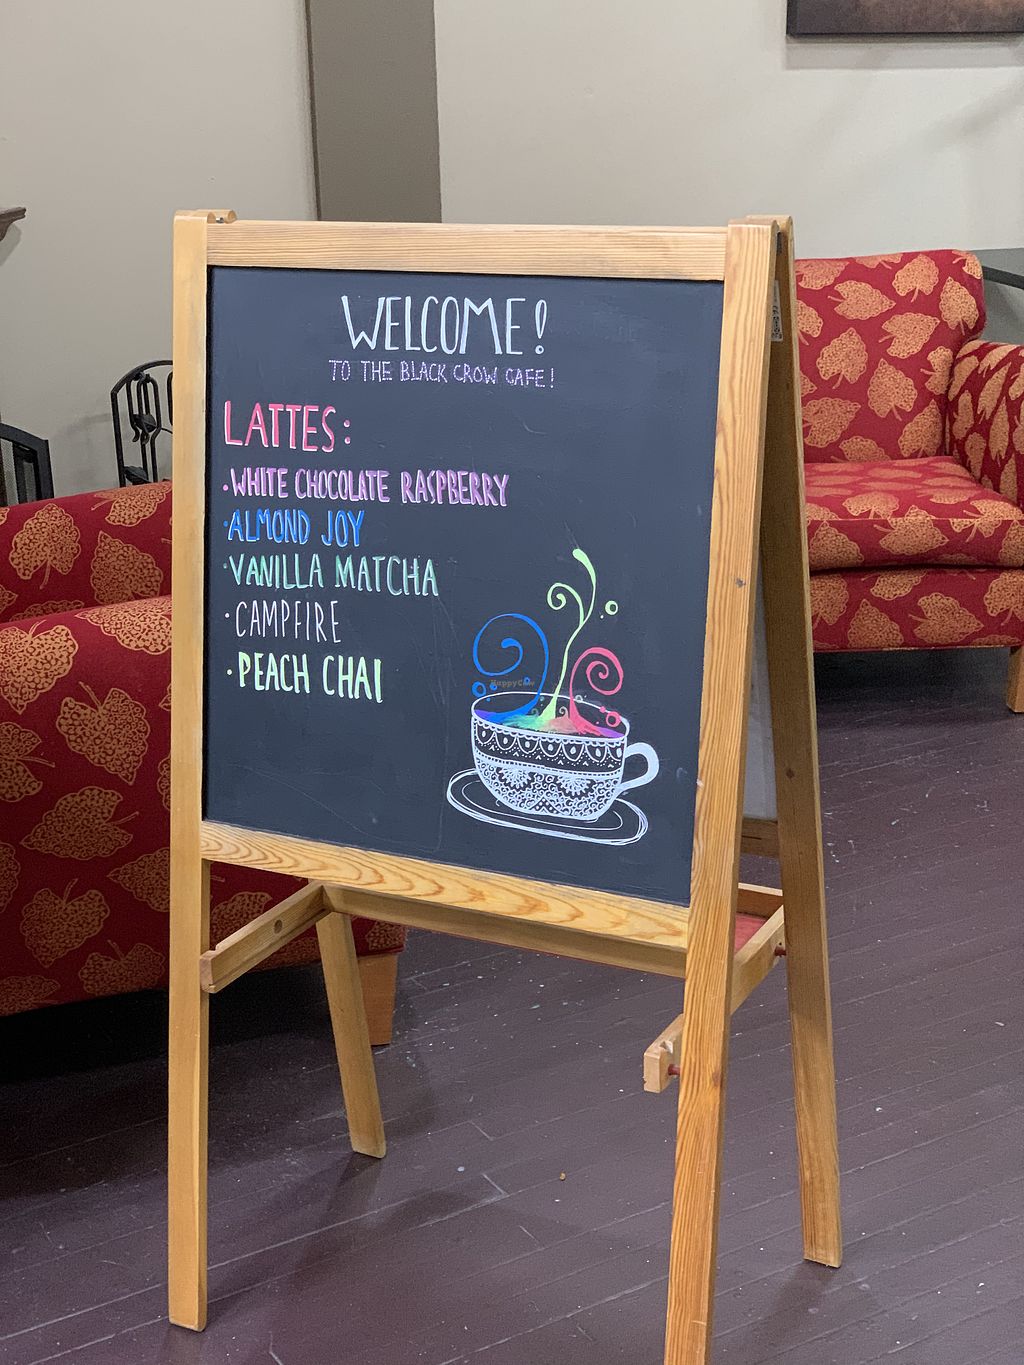 WELCOME!
TO THE BLACK CROW CAFE!
LATTES:
·WHITE CHOCOLATE RASPBERRY
·ALMOND JOY
·VANILLA MATCHA
·CAMPFIRE
·PEACH CHAI
HappyCow